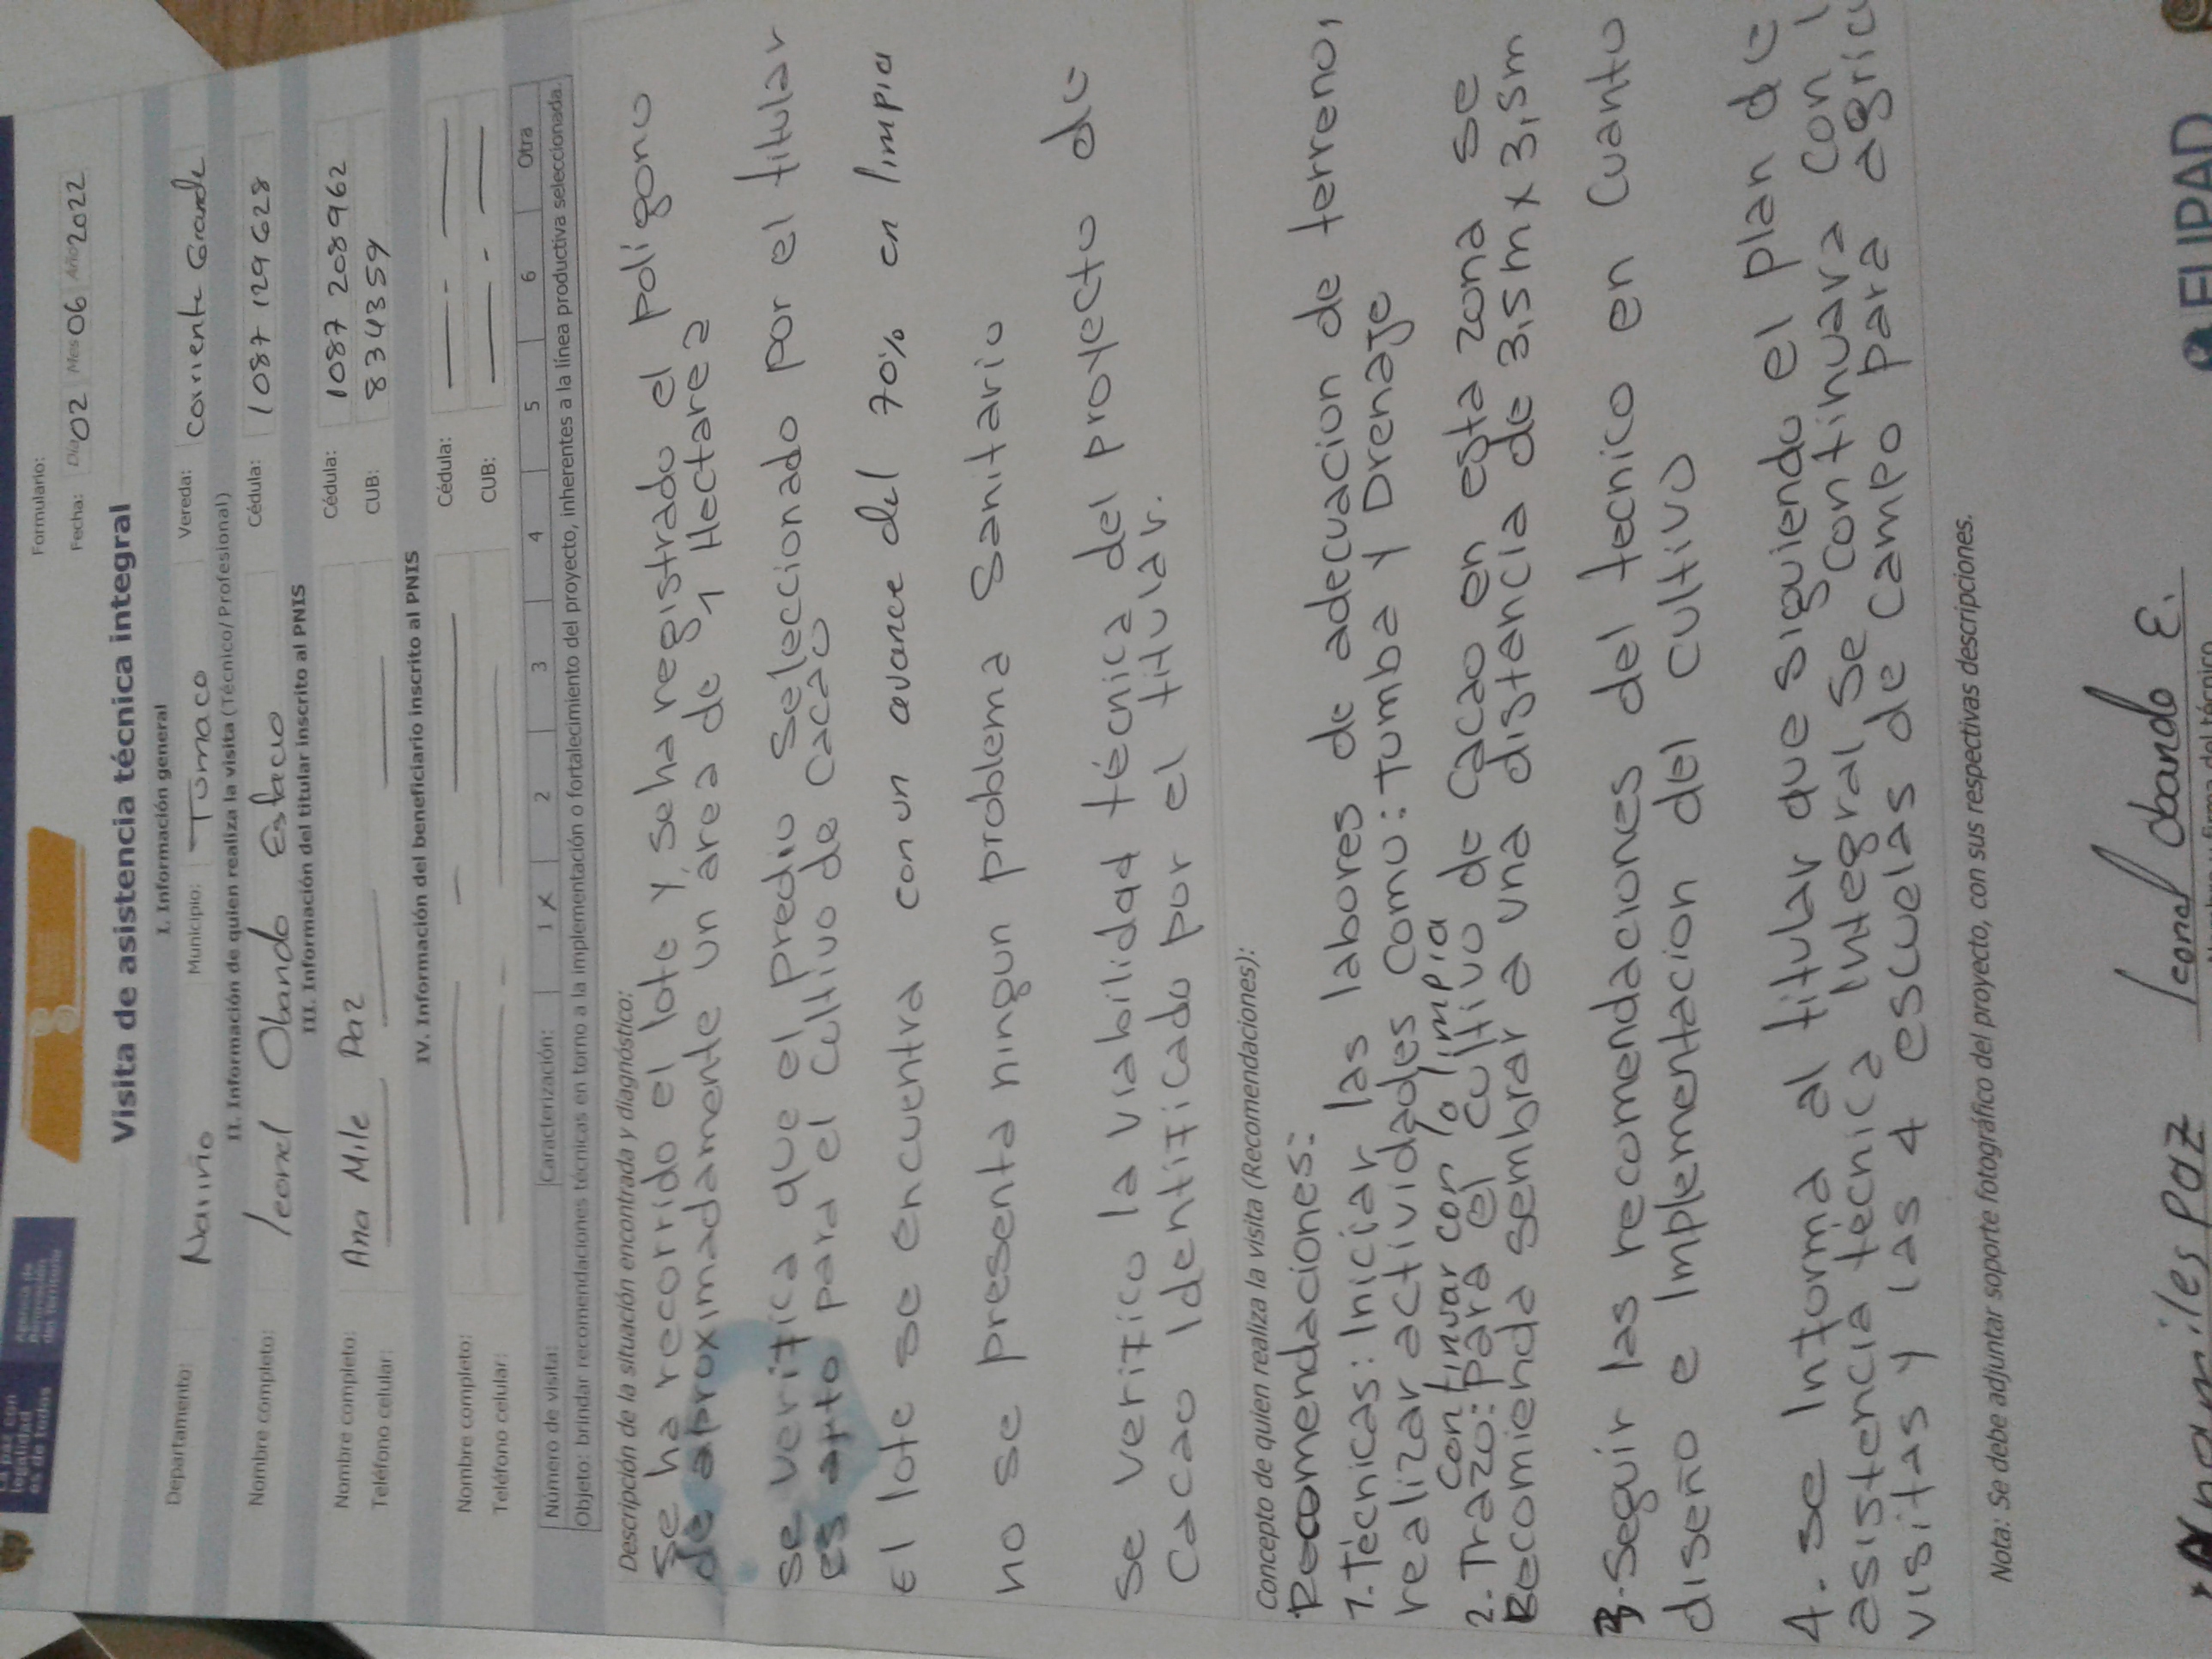 La paz con
legalidad
es de todos
Agencia de
Renovación
del Territorio
Formulario:
Fecha: Día 02 Mes 06 Año 2022
Visita de asistencia técnica integral
I. Información general
Departamento: Nariño Municipio: Tumaco Vereda: Corriente Grande
II. Información de quien realiza la visita (Técnico/Profesional)
Nombre completo: leonel Obando Estacio Cédula: 1087 129 628
III. Información del titular inscrito al PNIS
Nombre completo: Ana Mile Paz Cédula: 1087 208962
Teléfono celular: CUB: 8343359
IV. Información del beneficiario inscrito al PNIS
Nombre completo: Cédula:
Teléfono celular: CUB:
Número de visita: Caracterización: 1 X 2 3 4 5 6 Otra
Objeto: brindar recomendaciones técnicas en torno a la implementación o fortalecimiento del proyecto, inherentes a la línea productiva seleccionada.
Descripción de la situación encontrada y diagnóstico:
Se ha recorrido el lote y, se ha registrado el poligono
de aproximadamente un área de 1 Hectarea
se verifica que el predio seleccionado por el titular
es apto para el cultivo de cacao
El lote se encuentra con un avance del 70% en limpia
no se presenta ningun problema sanitario
Se verifico la viabilidad técnica del proyecto de
cacao identificado por el titular.
Concepto de quien realiza la visita (Recomendaciones):
Recomendaciones:
1. Técnicas: Iniciar las labores de adecuacion de terreno,
realizar actividades como: Tumba y Drenaje
continuar con la limpia
2. Trazo: para el cultivo de cacao en esta zona se
Recomienda sembrar a una distancia de 3,5m x 3,5m
3. Seguir las recomendaciones del tecnico en cuanto
diseño e implementacion del cultivo
4. se informa al titular que siguiendo el plan de
asistencia técnica integral se continuara con
visitas y las 4 escuelas de campo para agric
Nota: Se debe adjuntar soporte fotográfico del proyecto, con sus respectivas descripciones.
Anamiles Paz leonel obando E.
firma del técnico
ELIPAD